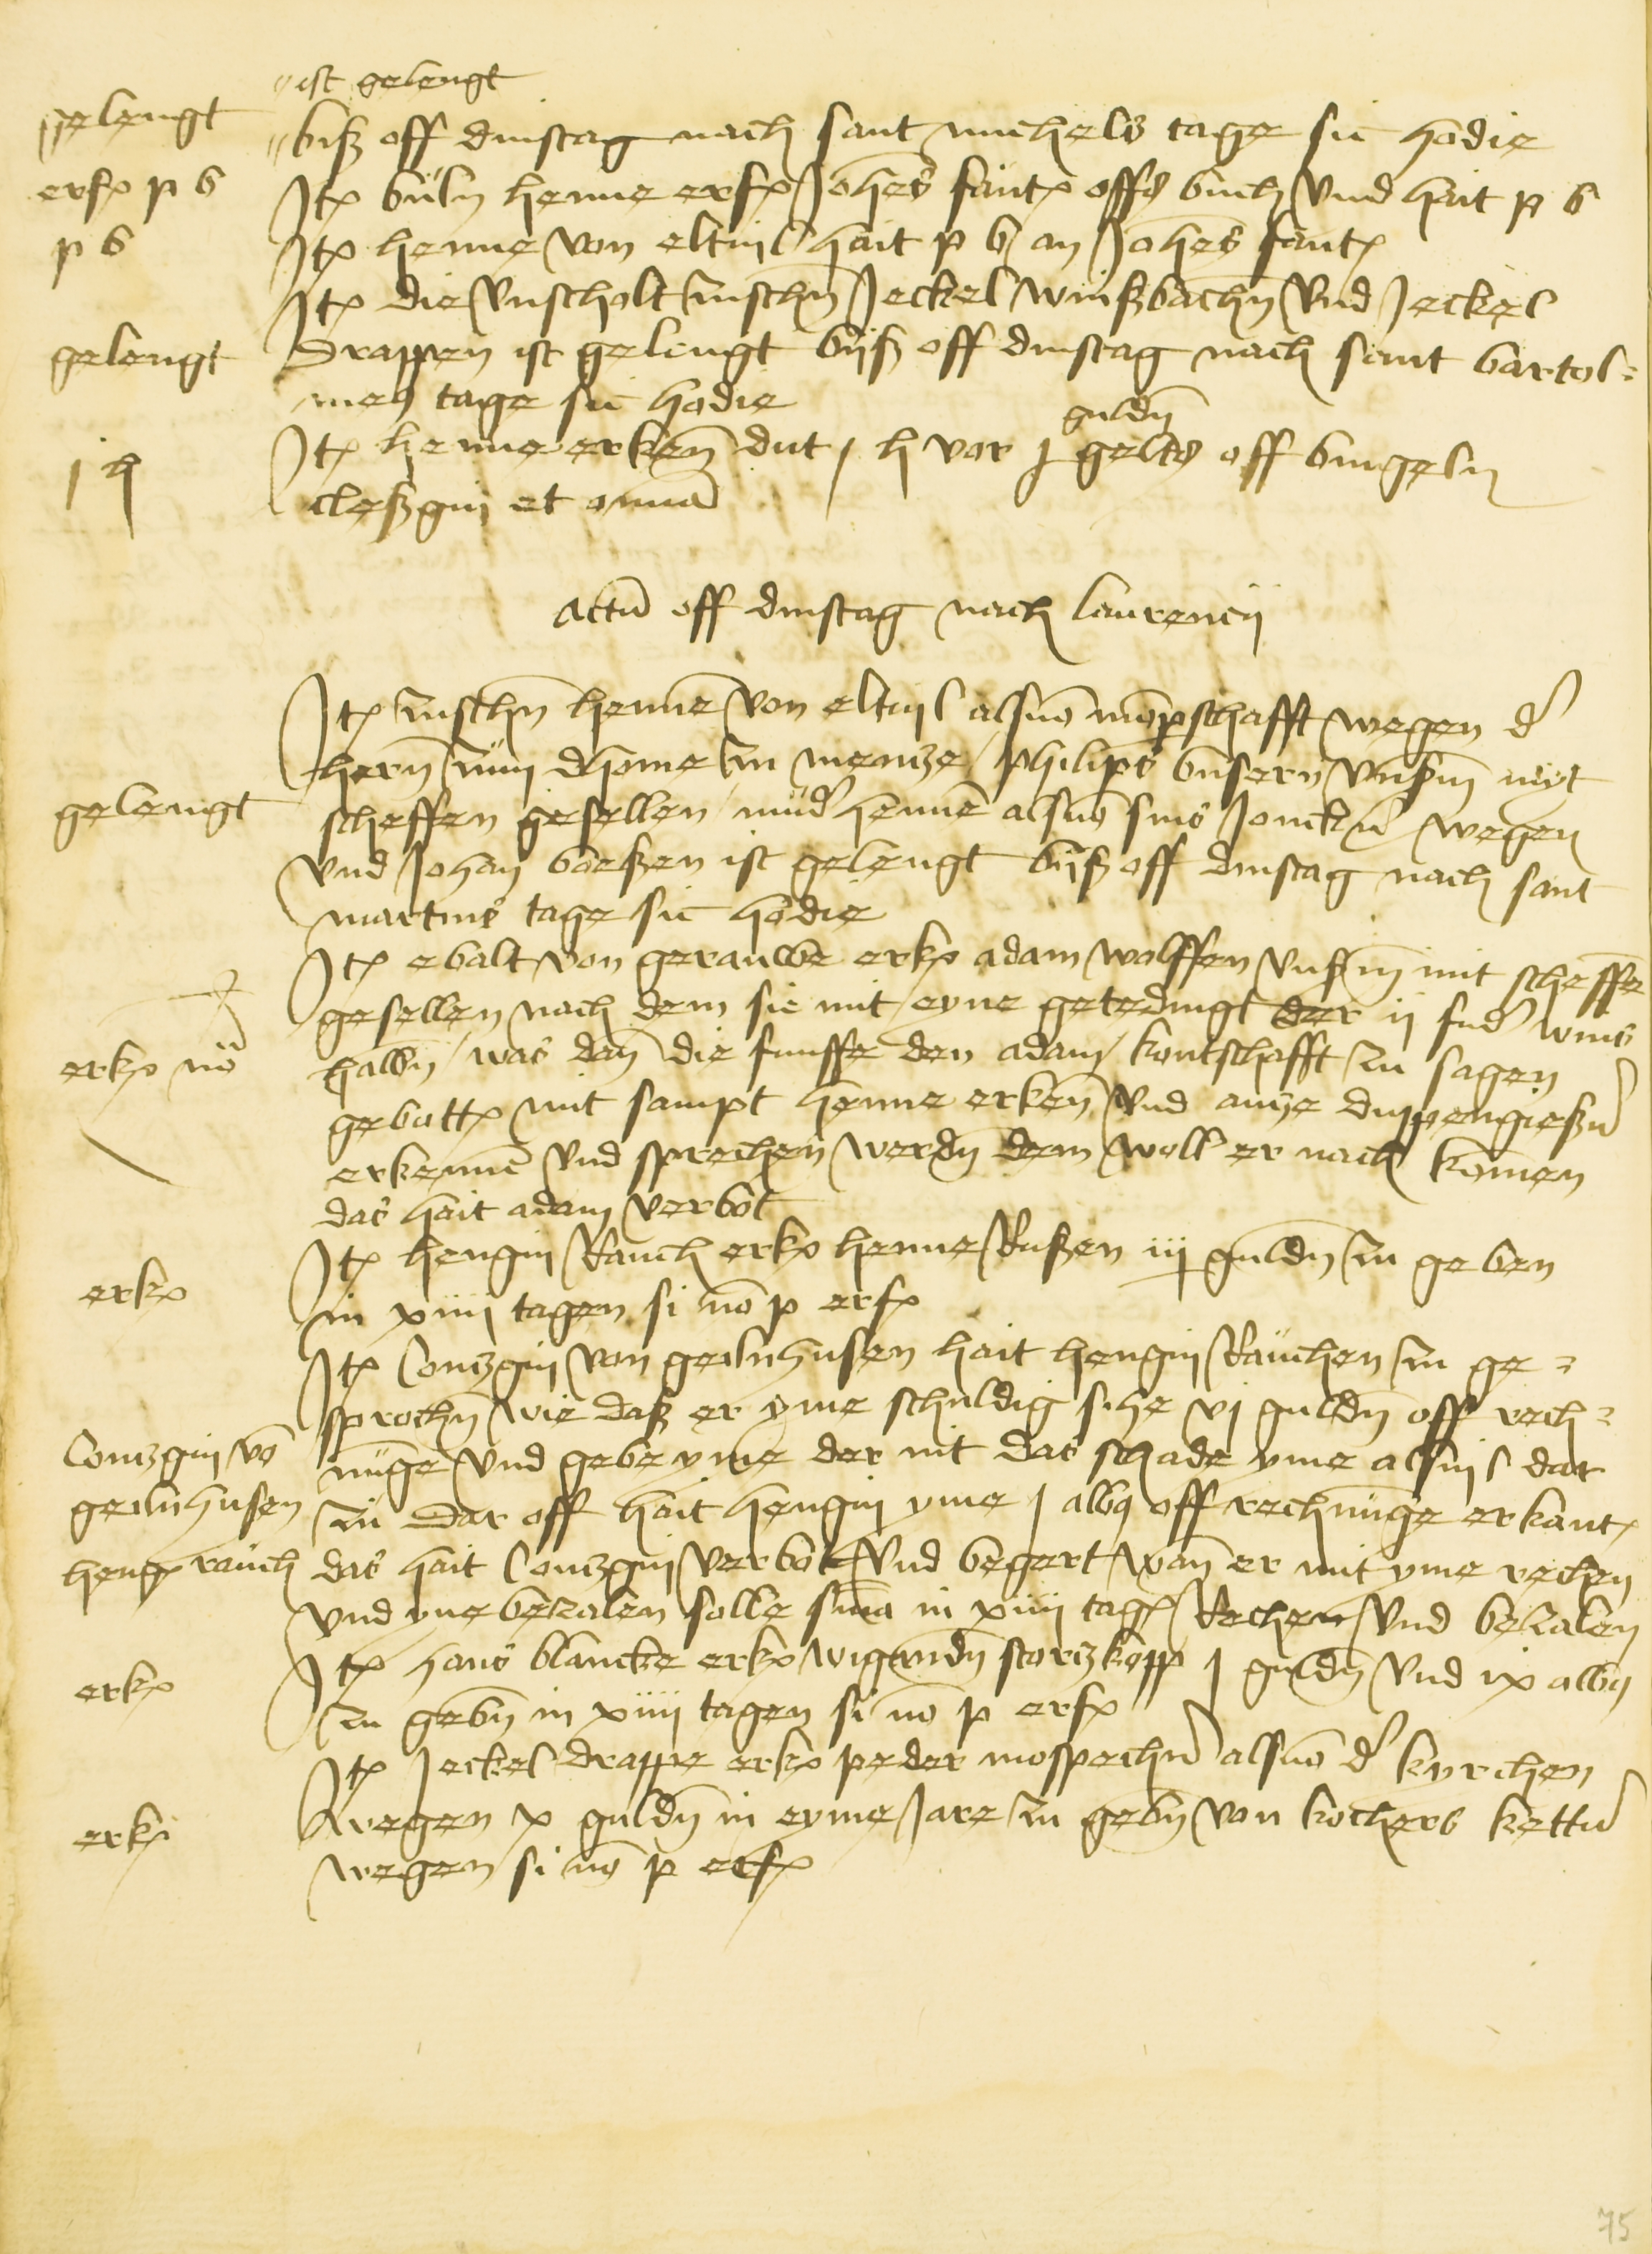 ist gelengt
gelengt
biß off dinstag nach sant michels tage sic hodie
erf p b
It buln henne erf Johes faut offs buch vnd hait p b
p b
It henne von eltuil hait p b an Johes faut
It die vnscholt zuschn Jeckel winßbachn vnd Jeckel
gelengt
Drappen ist gelengt bijß off dinstag nach sant bartol=
mes tage sic hodie
guldn
j h
It henne erken dut j h vor j gelts off bingeln
cleßgin et omnia
Actu off dinstag nach laurencij
It zuschn henne von eltuil als vo momp schafft wegen d
hern zum dhome zu mentze philips bunsern vnßm myt
gelengt
scheffen gesellen mud hennen als vo sins Jonckh wegen
vnd Johan boeßen ist gelengt bijß off dinstag nach sant
martins tage sic hodie
It ebalt von gerauwe erk adam wolffen vnßm mit scheffe
gesellen nach dem sie mit eyne getedingt der ij fud wins
erk no
halbn was dan die funffe den adam kontschafft zu sagen
gebott mit sampt henne erken vnd antze duppengießer
erkenne vnd sprechen werdn dem woll er nach komen
das hait adam verbot
erk
It hengin Rauch erk henne Rußen iij guldn zu geben
in xiiij tagen si no p erf
It Contzgin von geilnhusen hait hengin Rauchen zu ge=
sprochn wie daß er yme schuldig sihe vj guldn off rech=
Contzgin vo
nunge vnd gebe yme der nit das schade yme als vil dar
geilnhusen
zu Dar off hait hengin yme j alb off rechnunge erkant
heng rauch
das hait Contzgin verbot vnd begert wan er mit yme rechen
vnd yne bezalen solle sma in xiiij tag Rechen vnd bezalen
erk
It hans blancke erk wigandn stortzkopp j guldn vnd ix alb
zu gebn in xiiij tagen si no p erf
It Jeckel drappe erk peder mospechn als vo d kyrchen
erk
wegen x guldn in eyme Jare zu gebn von kochers kett
wegen si no p erf
75